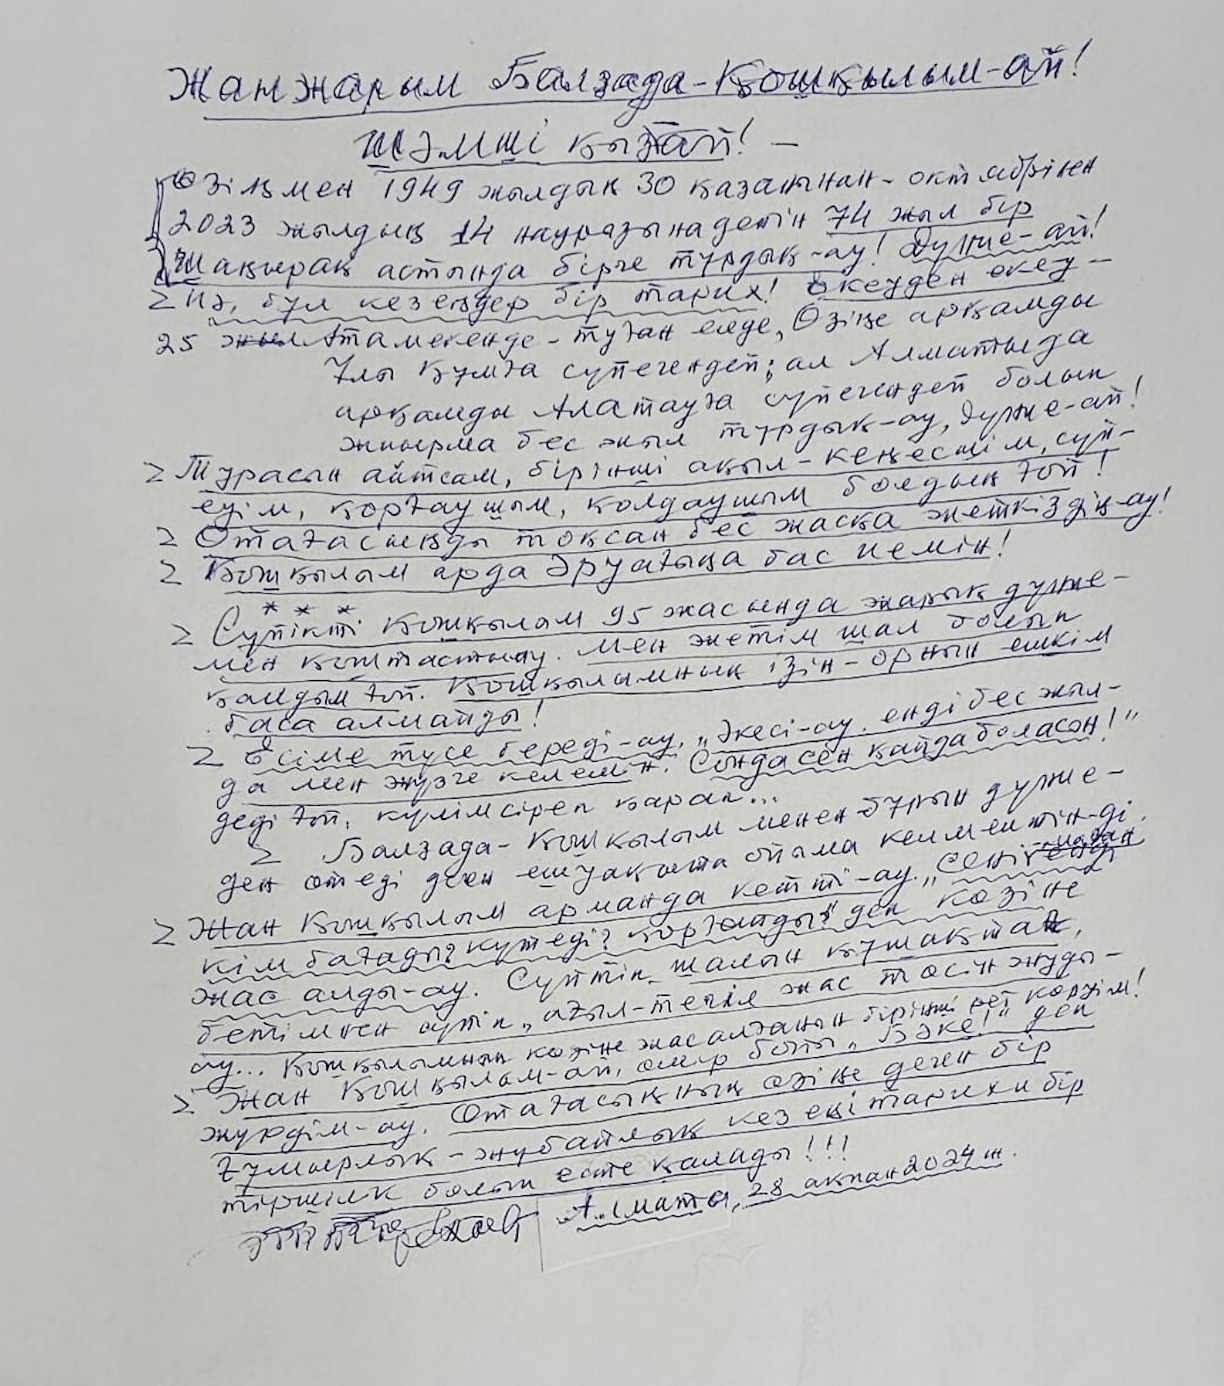 Жан жарым Балзада-Қошқылым-ай!
Шәмші қызай! —
Өзіңмен 1949 жылдың 30 қазанынан - октябрінен
2023 жылдың 14 наурызына дейін 74 жыл бір
Шаңырақ астында бірге тұрдық-ау! Дүние-ай!
Иә, бұл кезеңдер бір тарих! Екеуден екеу —
25 Атамекенде - туған елде, Өзіңе арқамды
Ұлы Құмға сүйегендей; ал Алматыда
арқамды Алатауға сүйегендей болып
жиырма бес жыл тұрдық-ау, дүние-ай!
Турасын айтсам, бірінші ақыл-кеңесшім, сүй-
еуім, қорғаушым, қолдаушым болдың ғой!
Отағасыңды тоқсан бес жасқа жеткіздің-ау!
Қошқылым арда әруағыңа бас иемін!
* * *
Сүйікті Қошқылым 95 жасында жарық дүние-
мен қоштастыау. Мен жетім шал болып
қалдым ғой. Қошқылымның ізін-орнын ешкім
баса алмайды!
Есіме түсе береді-ау, „Әкесі-ау, енді бес жыл-
да мен жүзге келемін. Сонда сен қайда боласың!"
деді ғой, күлімсіреп қарап...
Балзада-Қошқылым менен бұрын дүние-
ден өтеді деген ешуақытта ойыма келмейтін-ді.
Жан Қошқылым арманда кетті-ау. „Сені
кім бағады? күтеді? қорғайды?" деп көзіне
жас алды-ау. Сүйтіп, шалын құшақтап,
бетімнен сүйіп, ағыл-тегіл жас төсін жуды-
ау... Қошқылымның көзіне жас алғанын бірінші рет көрдім!
Жан Қошқылым-ай, өмір бойы „Бәке!" деп
жүрдім-ау. Отағасыңның өзіңе деген бір
ғұмырлық - жұбайлық кезеңі тарихи бір
тіршілік болып есте қалады!!!
Алматы, 28 ақпан 2024 ж.